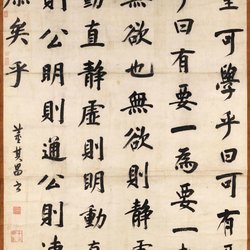 聖可學乎曰可有
乎曰有要一為要一
無欲也無欲則靜虛
動直靜虛則明動直
則公明則通公則溥
庶矣乎
董其昌書